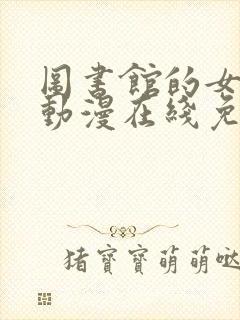 圖書館的女
動漫在綫免
猪寳寳萌萌噠